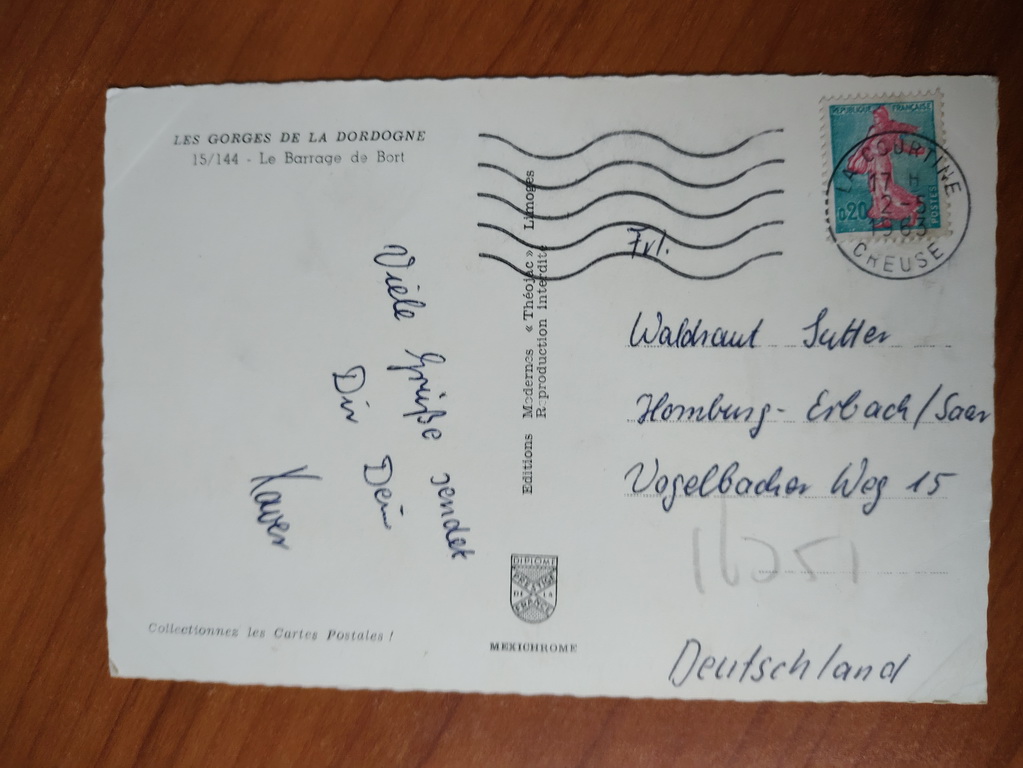 LES GORGES DE LA DORDOGNE
15/144 - Le Barrage de Bort
Viele Grüße sendet
Dir Dein
Xaver
Collectionnez les Cartes Postales !
Editions Modernes « Théojac » Limoges
Reproduction interdite
DIPLOME
PRESTIGE
DE LA
FRANCE
MEXICHROME
REPUBLIQUE FRANÇAISE
0,20
POSTES
LA COURTINE
17 H
12-5
1963
CREUSE
Frl.
Waldraut Sutter
Homburg-Erbach/Saar
Vogelbacher Weg 15
16251
Deutschland